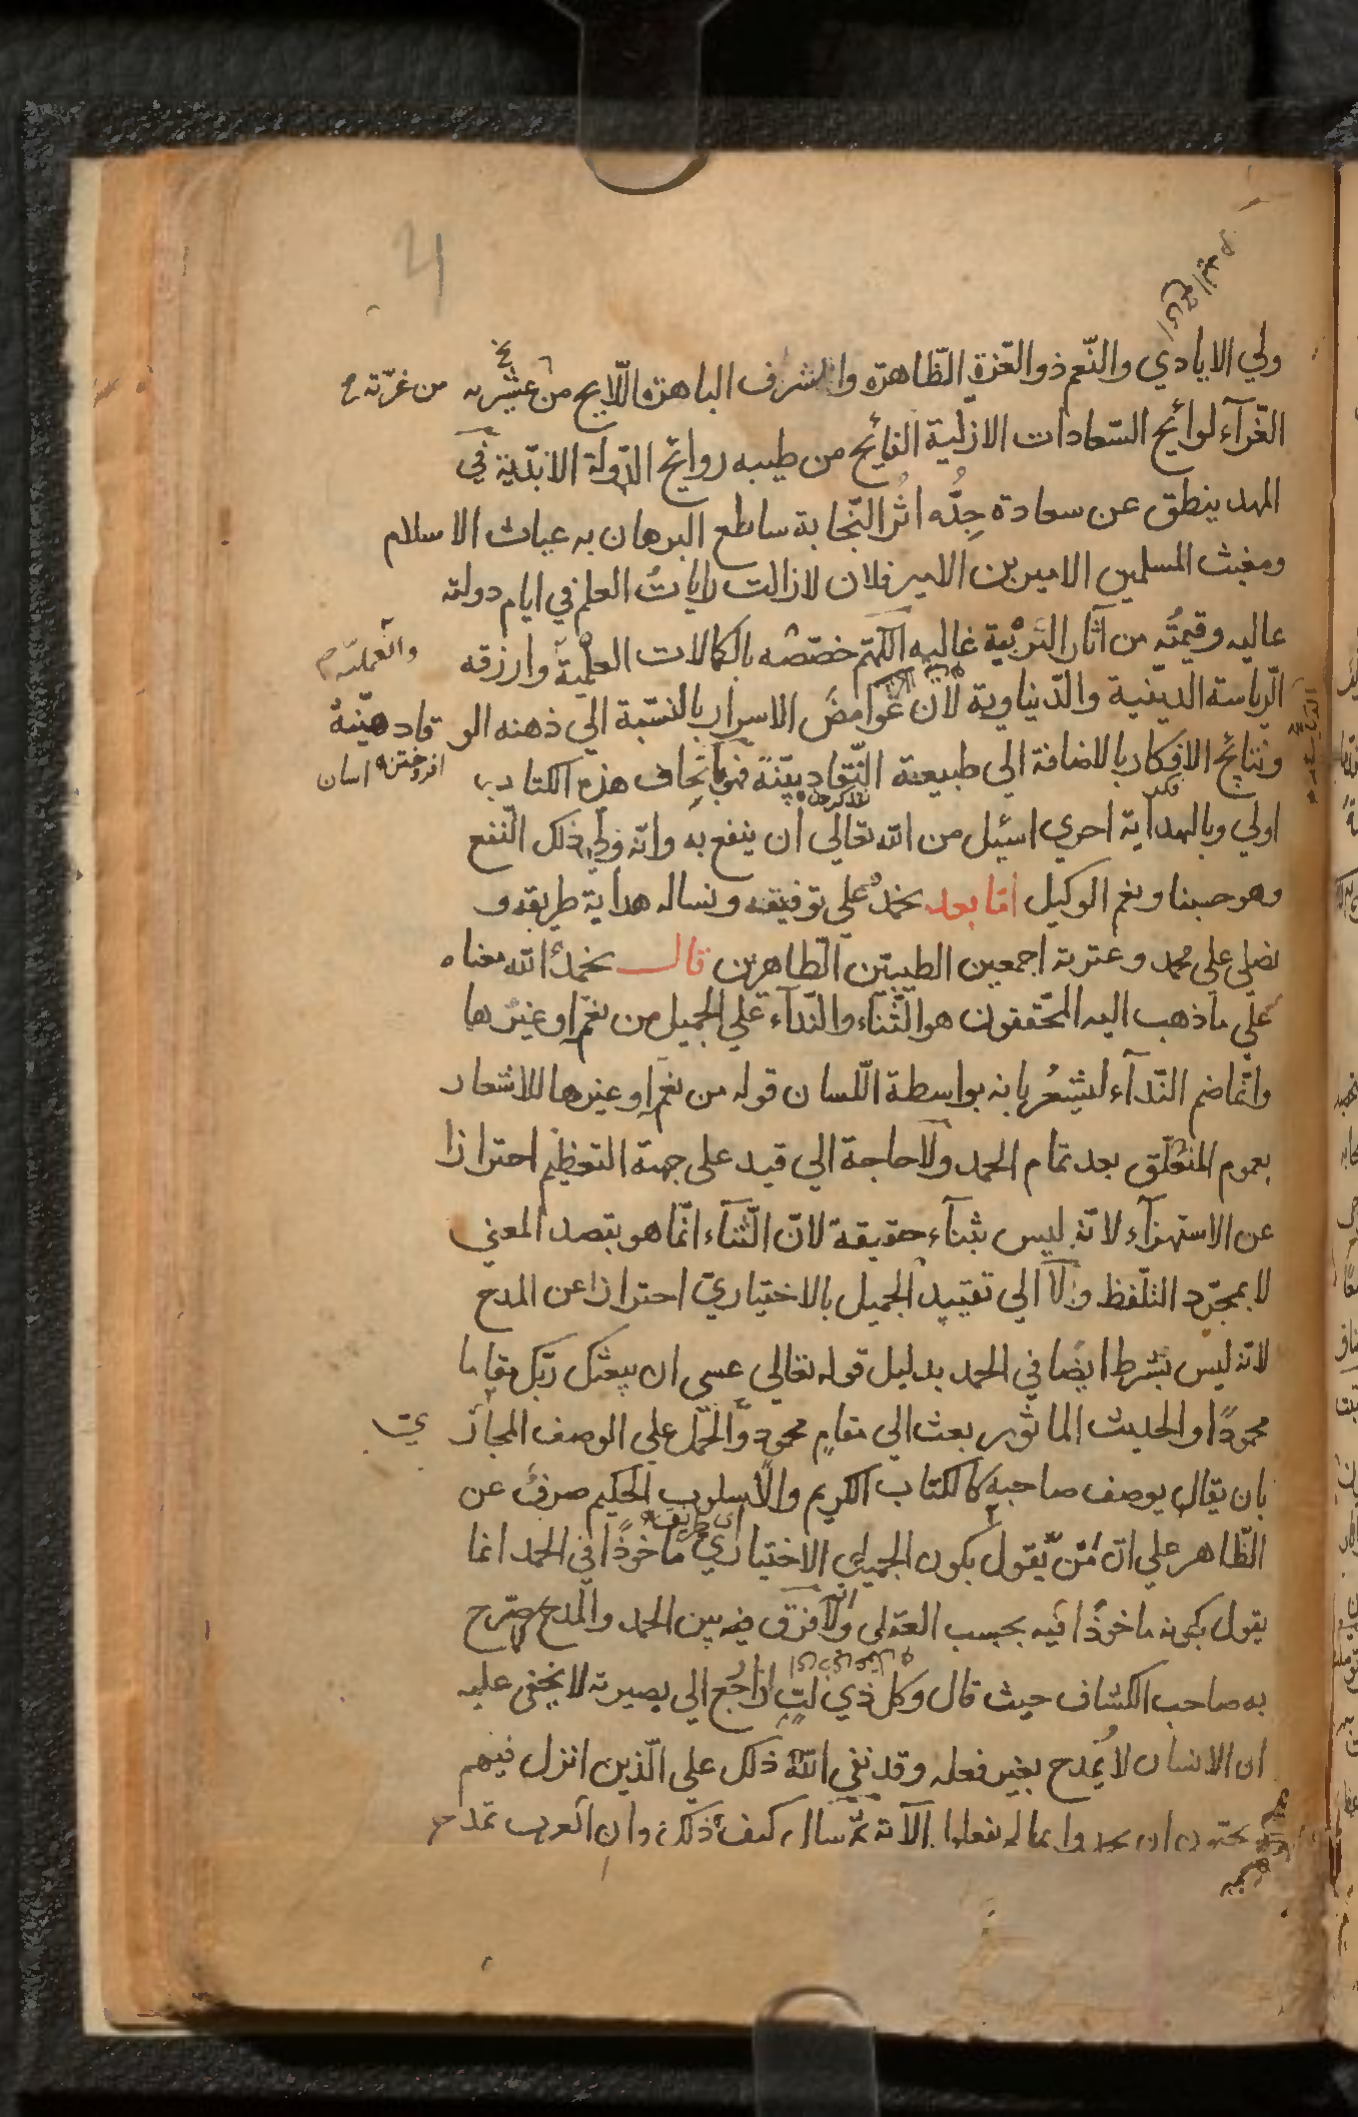 ولي الايادي والنّعم ذو العّزة الظّاهرة والشرف الباهرة اللّايح من عشيرته من غرّته
الغّرآء لوائح السّعادات الازلية الفايح من طيبه روايح الدّولة الابدّية في
المهد ينطق عن سعادة جِدُّه اثُر النّجابة ساطع البرهان به غياث الاسلام
ومغيث المسلمين الاميرين الامير فلان لازالت راياتُ العلم في ايام دولته
عاليه وقيمتُه من آثار التربْية غاليه اللّهّم خصّصْه بالكمالات العلْميّة وارزقه والعمليّة
الرّياسة الدينية والدّيناوية لانّ غوامضَ الاسرار بالنسّبة الي ذهنه الوقاد هيّنةٌ
ونتائج الافكار بالاضافة الي طبيعية النّقاد بيّنةٌ فهو باتحاف هذه الكتاب افروختن آسان
اولي وبالهداية احري اسئل من الله تعالي ان ينفع به وانّه وليّ ذلك النّفع
وهو حسبنا ونعم الوكيل امّا بعد نحمدُه علي توفيقه ونساله هداية طريقه و
نصلي علي محمد وعترته اجمعين الطيبّين الطاهرين قال نحمدُ الله معناه
علي ما ذهب اليه المحّققون هو الثّنآء والنّدآء علي الجميل من نعمٍ او غيرها
وانّما ضم النّدآء ليشعُر بانه بواسطة اللّسان قوله من نعمٍ او غيرها للاشعار
بعموم المتعلّق بعد تمام الحمد ولا حاجة الي قيد علي جهة التعظيم احترازا
عن الاستهزآء لانّه ليس بثنآء حقيقة لانّ الثّنآء انّما هو بقصد المعني
لا بمجرّد التلّفظ ولا الي تقييد الجميل بالاختياريّ احترازا عن المدح
لانّه ليس بشرط ايضًا في الحمد بدليل قوله تعالي عسي ان يبعثك ربّك مقاما
محمودًا والحديث الماثور بعث الي مقامٍ محمودٍ والحمل علي الوصف المجازي
بان يقال يوصف صاحبه كالكتاب الكريم والاسلوب الحكيم صرفٌ عن
الظّاهر علي انّ مَن يّقول بكون الجميل الاختياريّ ماخوذًا في الحمد انما
يقول بكونه ماخوذًا فيه بحسب العقل ولا فرق فيه بين الحمد والمدح صّرح
به صاحب الكشاف حيث قال وكل ذي لبٍّ اذا رجع الي بصيرته لا يخفي عليه
ان الانسان لا يُمدح بغير فعله وقد نفي اللهُ ذلك علي الّذين انزل فيهم
يحبّون ان يحمدوا بما لم يفعلوا الآية ثمّ سال كيف ذلك وان العرب تمدح